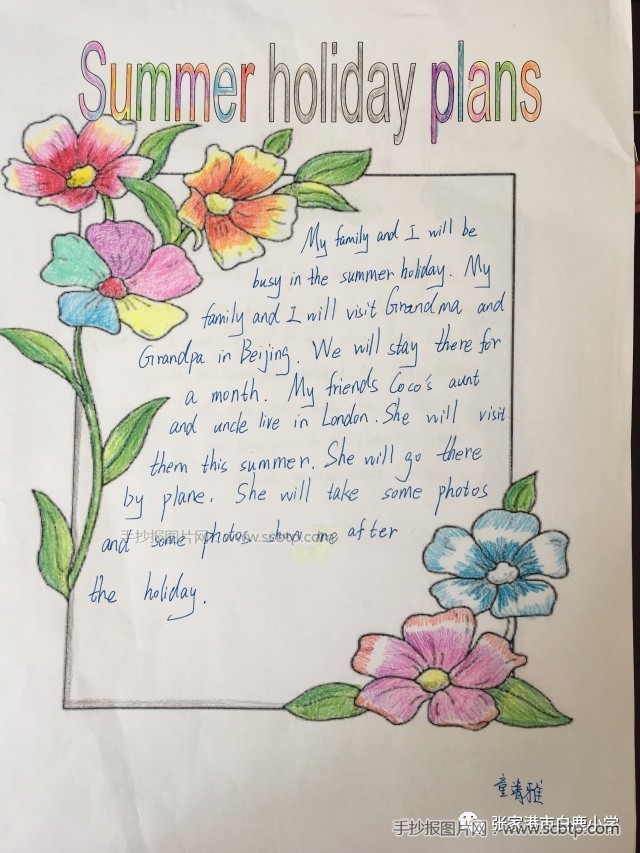 Summer holiday plans
My family and I will be
busy in the summer holiday. My
family and I will visit Grandma and
Grandpa in Beijing. We will stay there for
a month. My friends Coco's aunt
and uncle live in London. She will visit
them this summer. She will go there
by plane. She will take some photos
and some photos show me after
手抄报图片网 www.scbtp.com
the holiday.
童靖雅
张家港市白鹿小学
手抄报图片网：www.scbtp.com